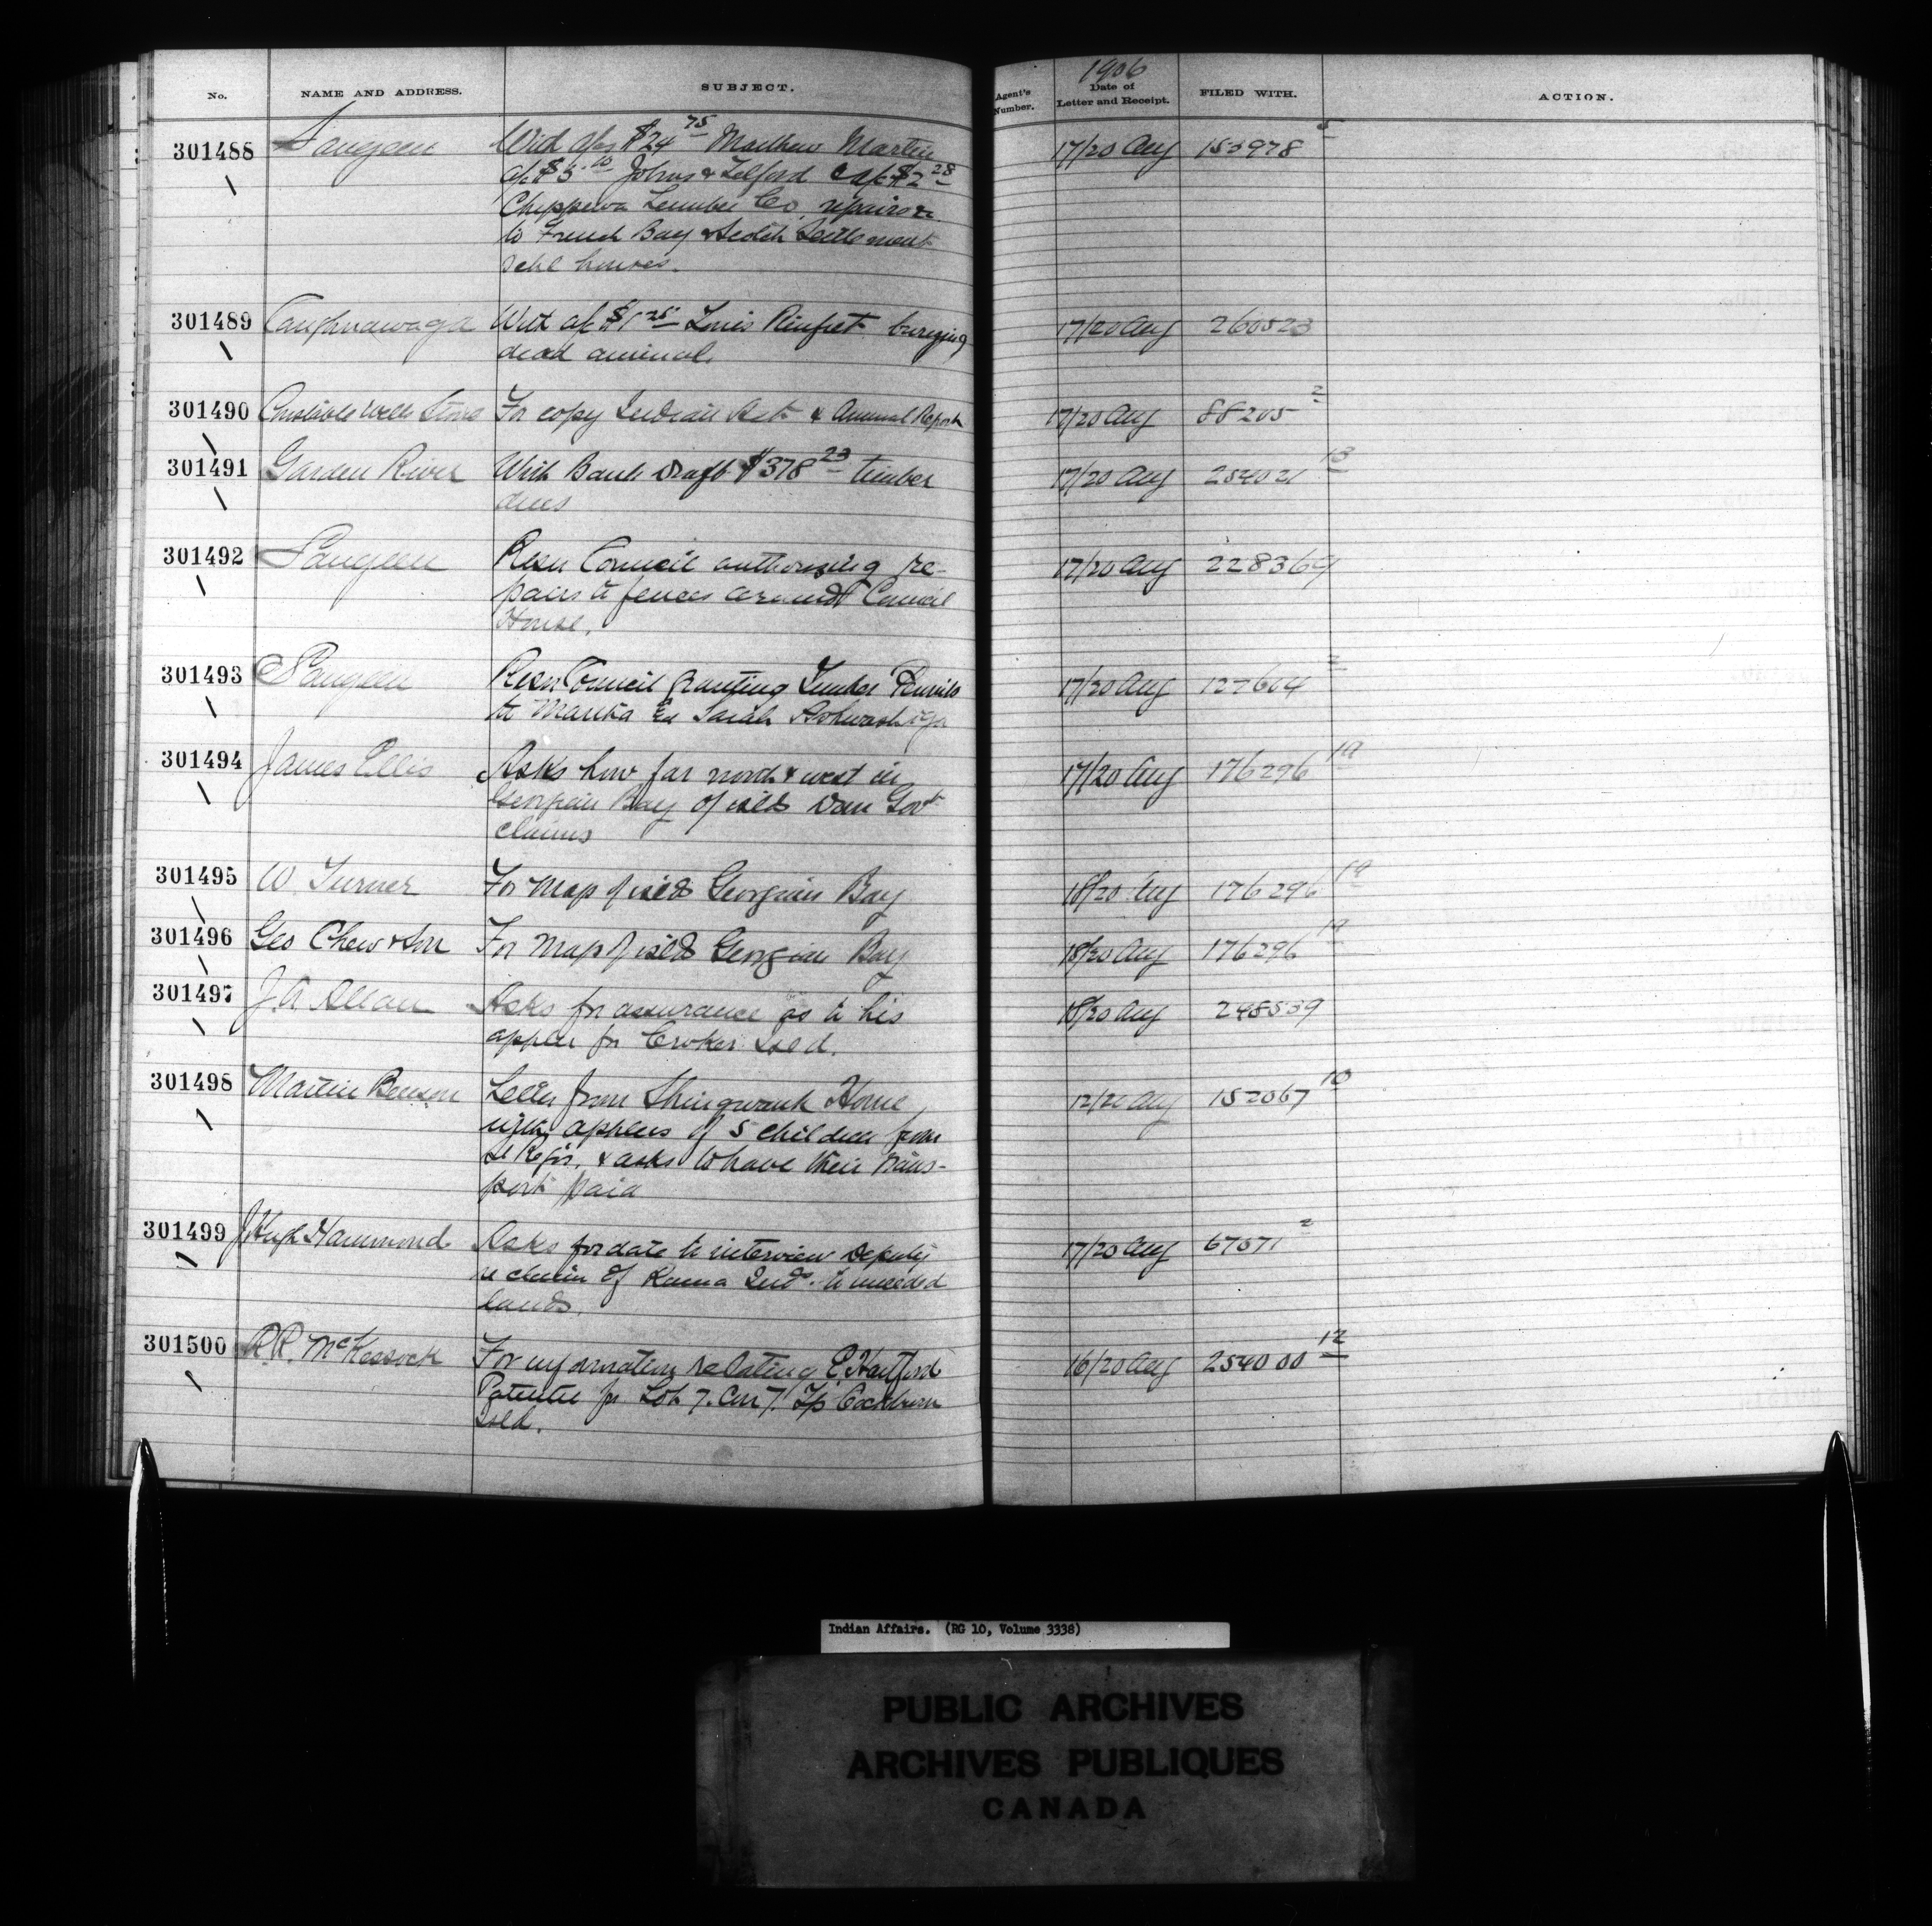 No. NAME AND ADDRESS. SUBJECT. Agent's Number. 1906 Date of Letter and Receipt. FILED WITH. ACTION.
301488 Saugeen With a/cs $24 75 Matthew Martin 17/20 Aug 153978 5
a/c $5 Johns & Telford & a/c $2 28
Chippewa Lumber Co. repairs &c
to French Bay & Scotch Settlement
schl houses.
301489 Caughnawaga With a/c $1 25 Louis Rinfret burying 17/20 Aug 260523
dead animal.
301490 For copy Indian Act & Annual Report 17/20 Aug 88205 2
301491 Garden River With Bank Draft $378 23 timber 17/20 Aug 254021 13
dues
301492 Saugeen Resn Council authorizing re- 17/20 Aug 228369
pairs to fences around Council
House.
301493 Saugeen Resn Council granting Timber Permits 17/20 Aug 127604 2
to Sarah
301494 James Ellis Asks how far north & west in 17/20 Aug 176296 19
Georgian Bay of islds Dom Govt
claims
301495 W. Turner For map of islds Georgian Bay 18/20 Aug 176296 19
301496 Geo Chew & Son For map of islds Georgian Bay 18/20 Aug 176296 19
301497 J.A. Allan Asks for assurance as to his 18/20 Aug 248539
applcn for Croker Isld.
301498 Martin Benson Letter from Shingwauk Home 12/20 Aug 152067 10
applcns of 5 children from
St Regis, & asks to have their trans-
port paid
301499 J Hugh Hammond Asks for date to interview Deputy 17/20 Aug 67071 2
re claim of Rama Inds. to unceded
lands.
301500 R.R. McKessock For information relating E. Hartford 16/20 Aug 254000 12
Patentee for Lot 7. Con 7. T/p Cockburn
Isld.
Indian Affairs. (RG 10, Volume 3338)
PUBLIC ARCHIVES
ARCHIVES PUBLIQUES
CANADA